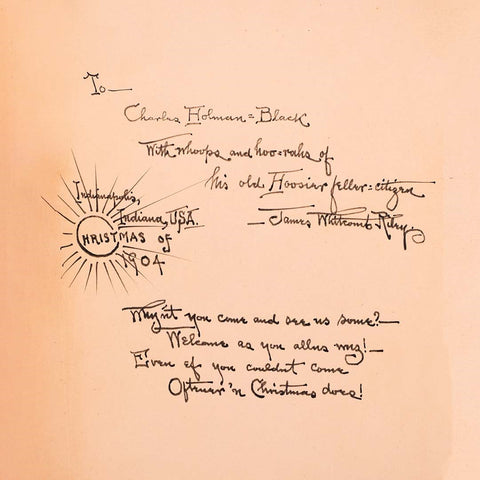 To—
Charles Holman=Black
With whoops and hoo-rahs of
his old Hoosier feller=citizen
—James Whitcomb Riley,
Indianapolis,
Indiana, USA.
CHRISTMAS of
1904
Why'nt you come and see us some?—
Welcome as you allus wuz!—
E'even ef you couldn't come
Oftener'n Christmas does!